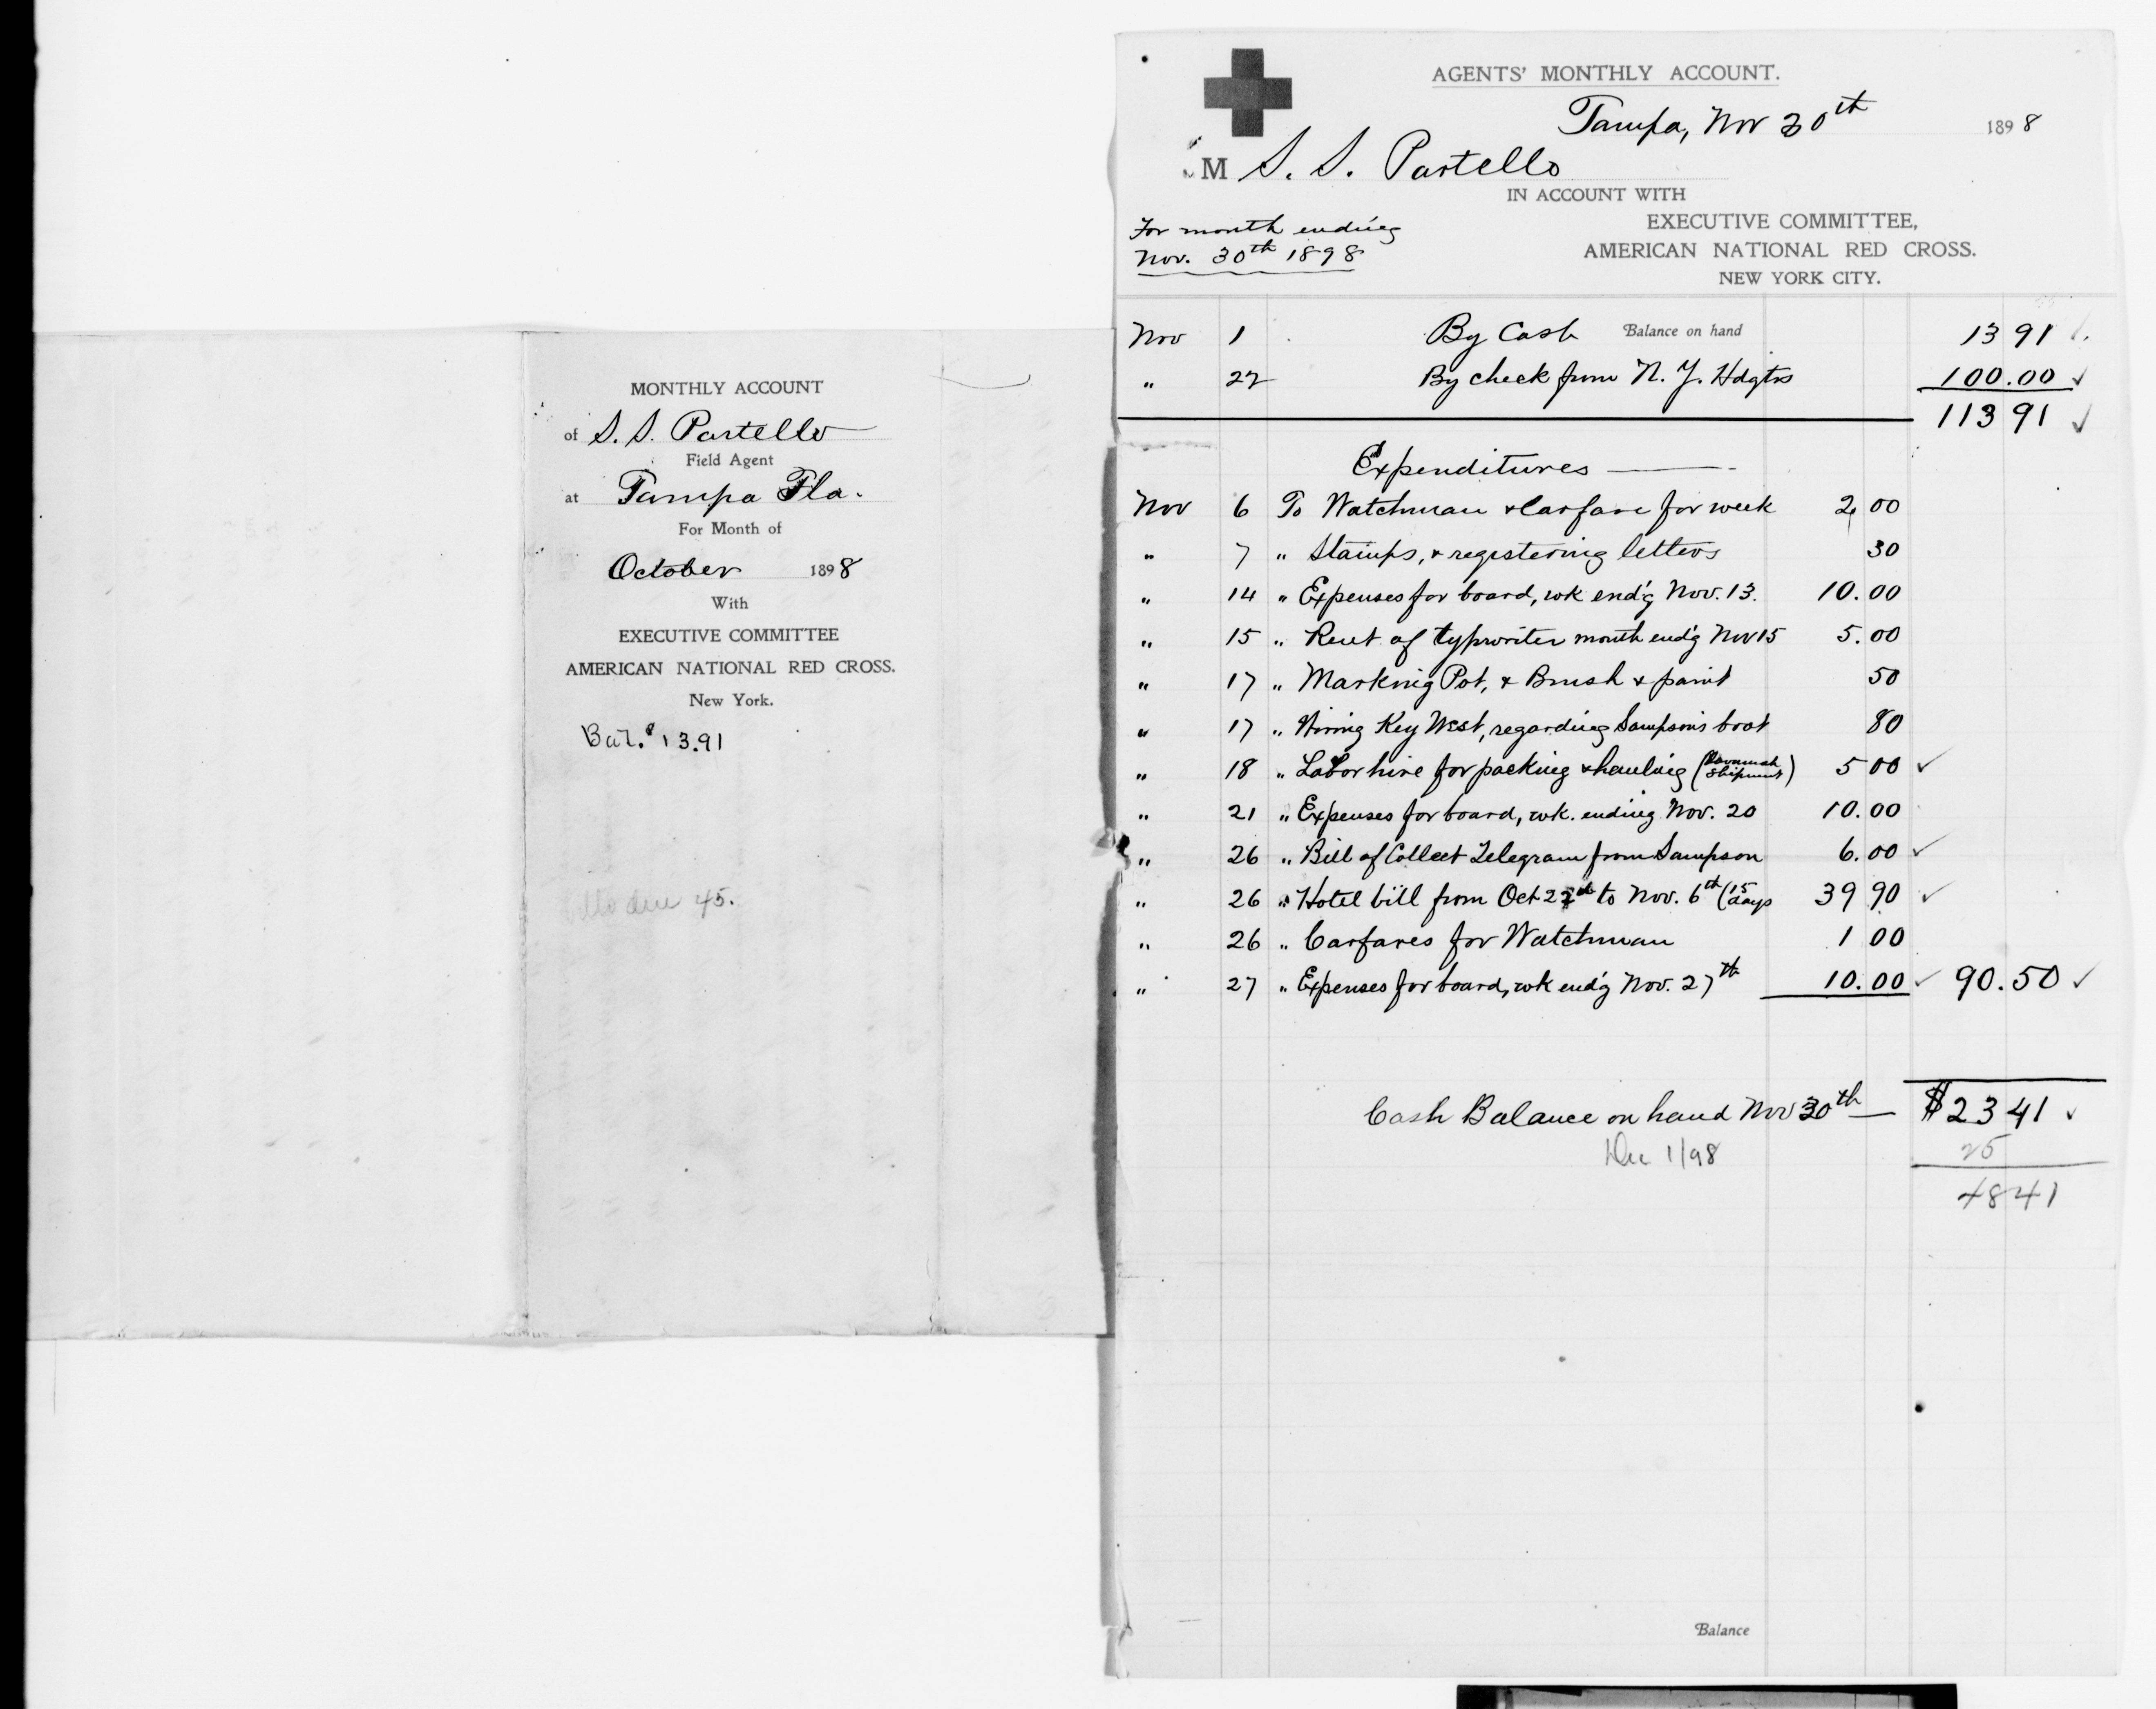 MONTHLY ACCOUNT
of S. S. Partello
Field Agent
at Tampa Fla.
For Month of
October 1898
With
EXECUTIVE COMMITTEE
AMERICAN NATIONAL RED CROSS.
New York.
Bal. $13.91
due 45.
AGENTS' MONTHLY ACCOUNT.
Tampa, Nov 30th 1898
M S. S. Partello
IN ACCOUNT WITH
EXECUTIVE COMMITTEE,
AMERICAN NATIONAL RED CROSS.
NEW YORK CITY.
For month ending
Nov. 30th 1898
Nov 1 By Cash Balance on hand 13 91
" 22 By check from N. Y. Hdqtrs 100.00 ✓
113 91 ✓
Expenditures
Nov 6 To Watchman & Carfare for week 2 00
" 7 " Stamps, & registering letters 30
" 14 " Expenses for board, wk end'g Nov. 13. 10.00
" 15 " Rent of typwriter month end'g Nov 15 5.00
" 17 " Marking Pot, & Brush & paint 50
" 17 " Wiring Key West, regarding Sampson's boat 80
" 18 " Labor hire for packing & hauling (Savannah shipment) 5 00 ✓
" 21 " Expenses for board, wk. ending Nov. 20 10.00
" 26 " Bill of Collect Telegram from Sampson 6.00 ✓
" 26 " Hotel bill from Oct 22d to Nov. 6th (15 days 39 90 ✓
" 26 " Carfares for Watchman 1 00
" 27 " Expenses for board, wk end'g Nov. 27th 10.00 ✓ 90.50 ✓
Cash Balance on hand Nov 30th — $23 41 ✓
Dec 1/98 25
48 41
Balance